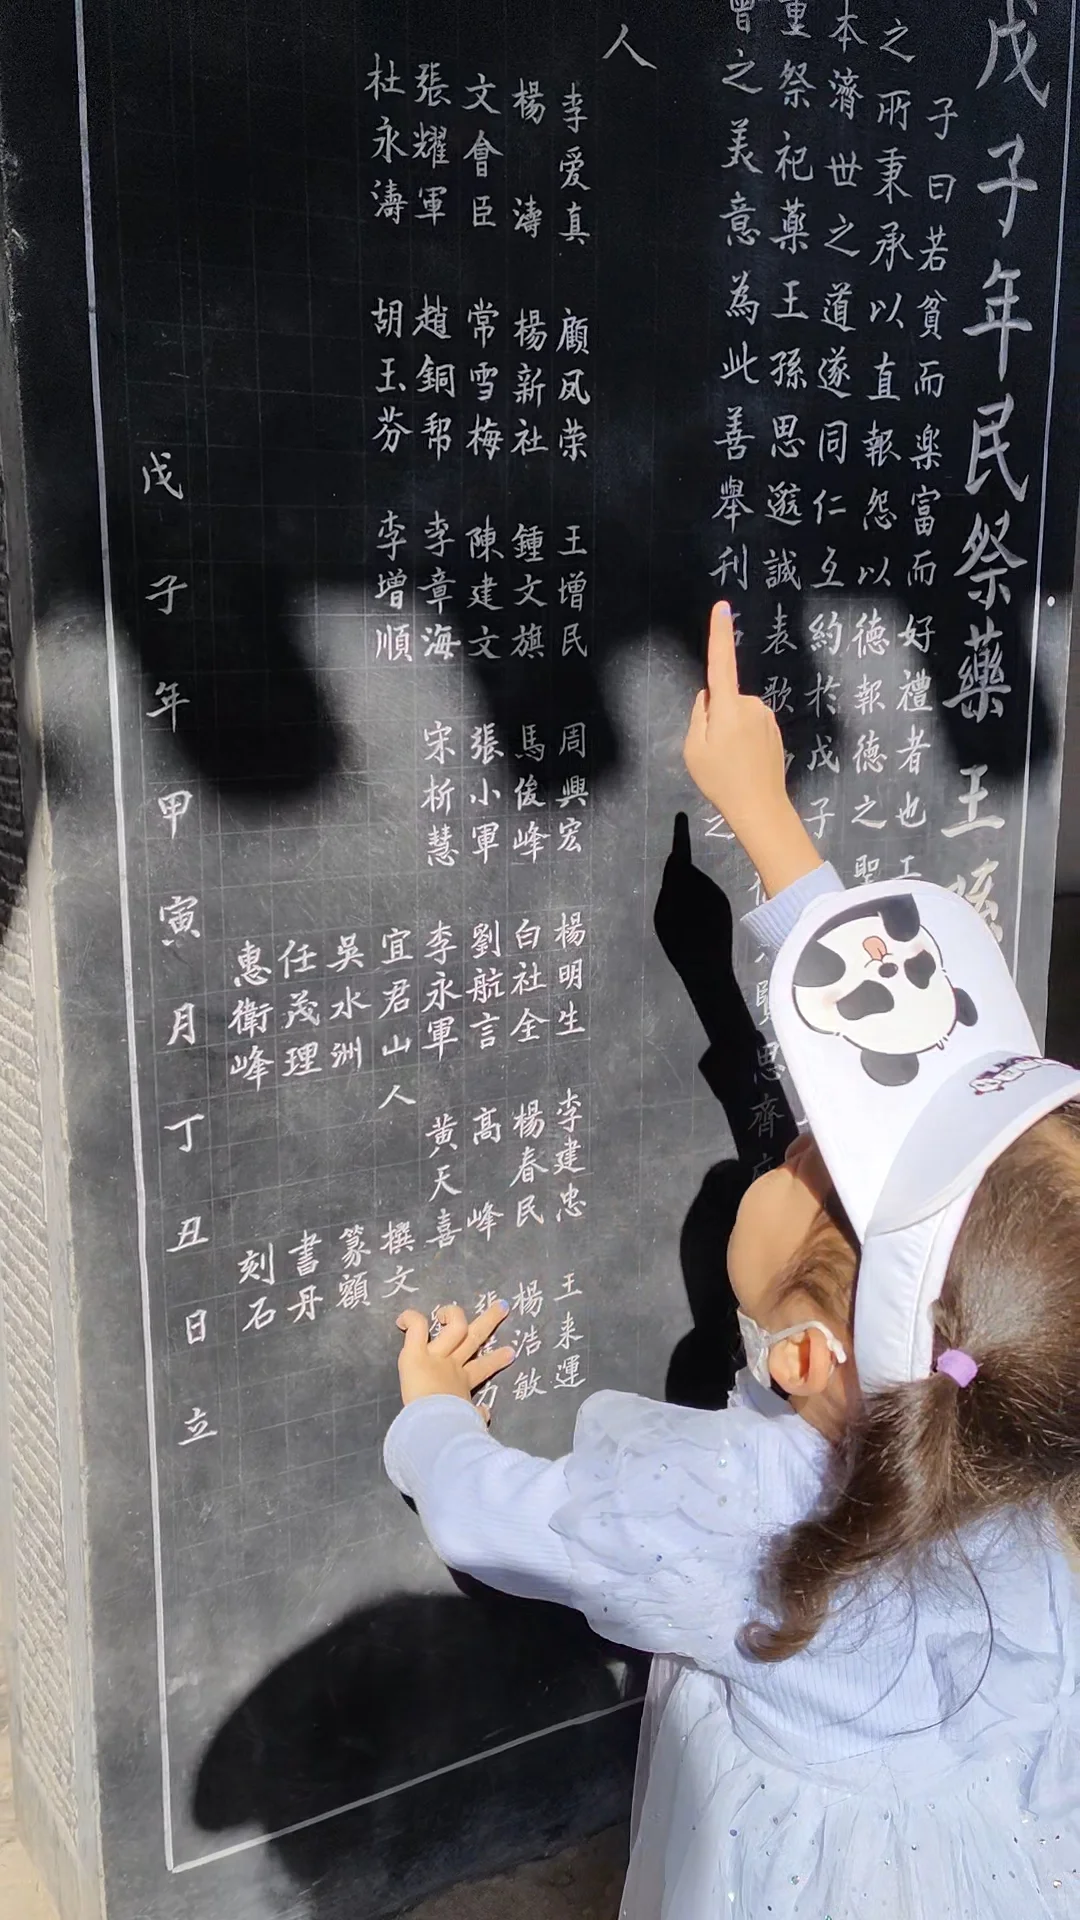 戊子年民祭藥王孫
子曰若貧而楽富而好禮者也
之所秉承以直報怨以德報德之聖
本濟世之道遂同仁立約於戊子
重祭祀藥王孫思邈誠表歌
曾之美意為此善舉刊石
之
賢思齊
人
李爱真 顧凤荣 王增民 周興宏 楊明生 李建忠 王来運
楊濤 楊新社 鍾文旗 馬俊峰 白社全 楊春民 楊浩敏
文會臣 常雪梅 陳建文 張小軍 劉航言 高峰 張 力
張耀軍 趙銅帮 李章海 宋析慧 李永軍 黄天喜 劉
杜永濤 胡玉芬 李增順
宜君山人 撰文
吳水洲 篆額
任茂理 書丹
惠衛峰 刻石
戊子年甲寅月丁丑日立